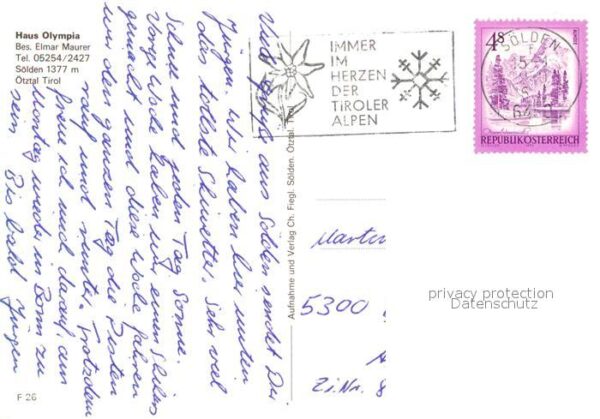 Haus Olympia
Bes. Elmar Maurer
Tel. 05254/2427
Sölden 1377 m
Ötztal Tirol
Viele Grüße aus Sölden sendet Dir
Jürgen. Wir haben hier unten
das tollste Skiwetter, sehr viel
Schnee und jeden Tag Sonne.
Vorige Woche haben wir einen Skikurs
gemacht und diese Woche fahren
wir den ganzen Tag die Pisten
rauf und runter. Trotzdem
freue ich mich darauf, am
Montag wieder in Bonn zu
sein. Bis bald Jürgen
F 26
Aufnahme und Verlag Ch. Fiegl, Sölden, Ötztal,
IMMER
IM
HERZEN
DER
TIROLER
ALPEN
SÖLDEN
4S
REPUBLIK ÖSTERREICH
5300
Zi.Nr. 8
privacy protection
Datenschutz